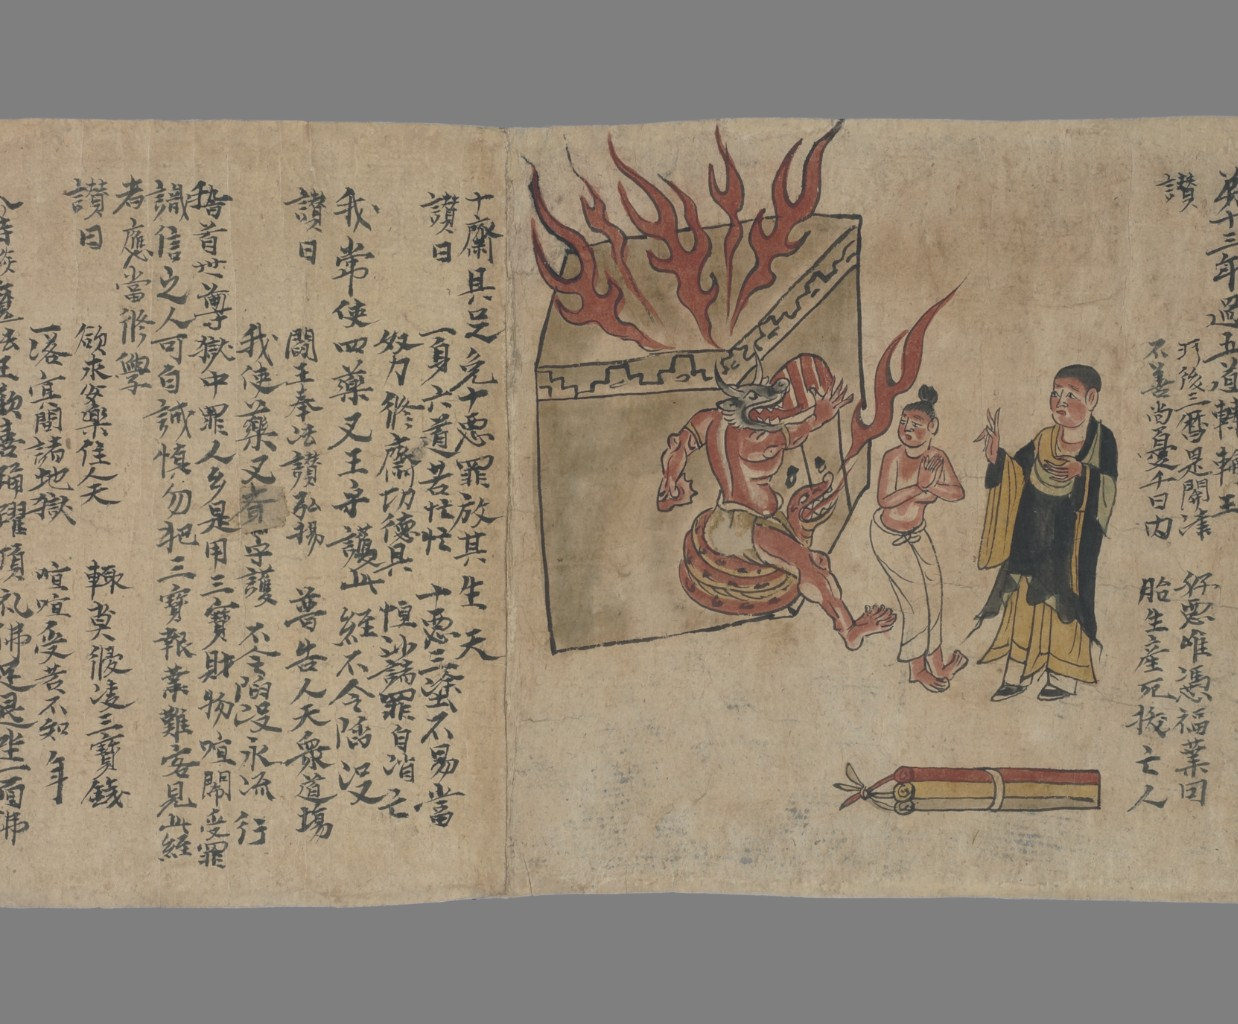 第十三年過五道轉輪王
讃
後三曆是關津 好惡唯憑福業因
不善尚憂千日内 胎生產死拔亡人
十齋具足免十惡罪放其生天
讃曰
一身六道苦忙忙 十惡三塗不易當
努力修齋功德具 恒沙諸罪自消亡
我常使四藥叉王守護此經不令陷没
讃曰
閻王奉法讃弘揚 普告人天衆道場
我使藥叉齊守護 不令陷没永流行
稽首世尊獄中罪人多是用三寶財物喧鬧受罪
識信之人可自誡慎勿犯三寶報業難容見此經
者應當修學
讃曰
欲求安樂住人天 輙莫侵凌三寶錢
一落冥間諸地獄 喧喧受苦不知年
魔法王歡喜踊躍頂礼佛足退坐一面佛